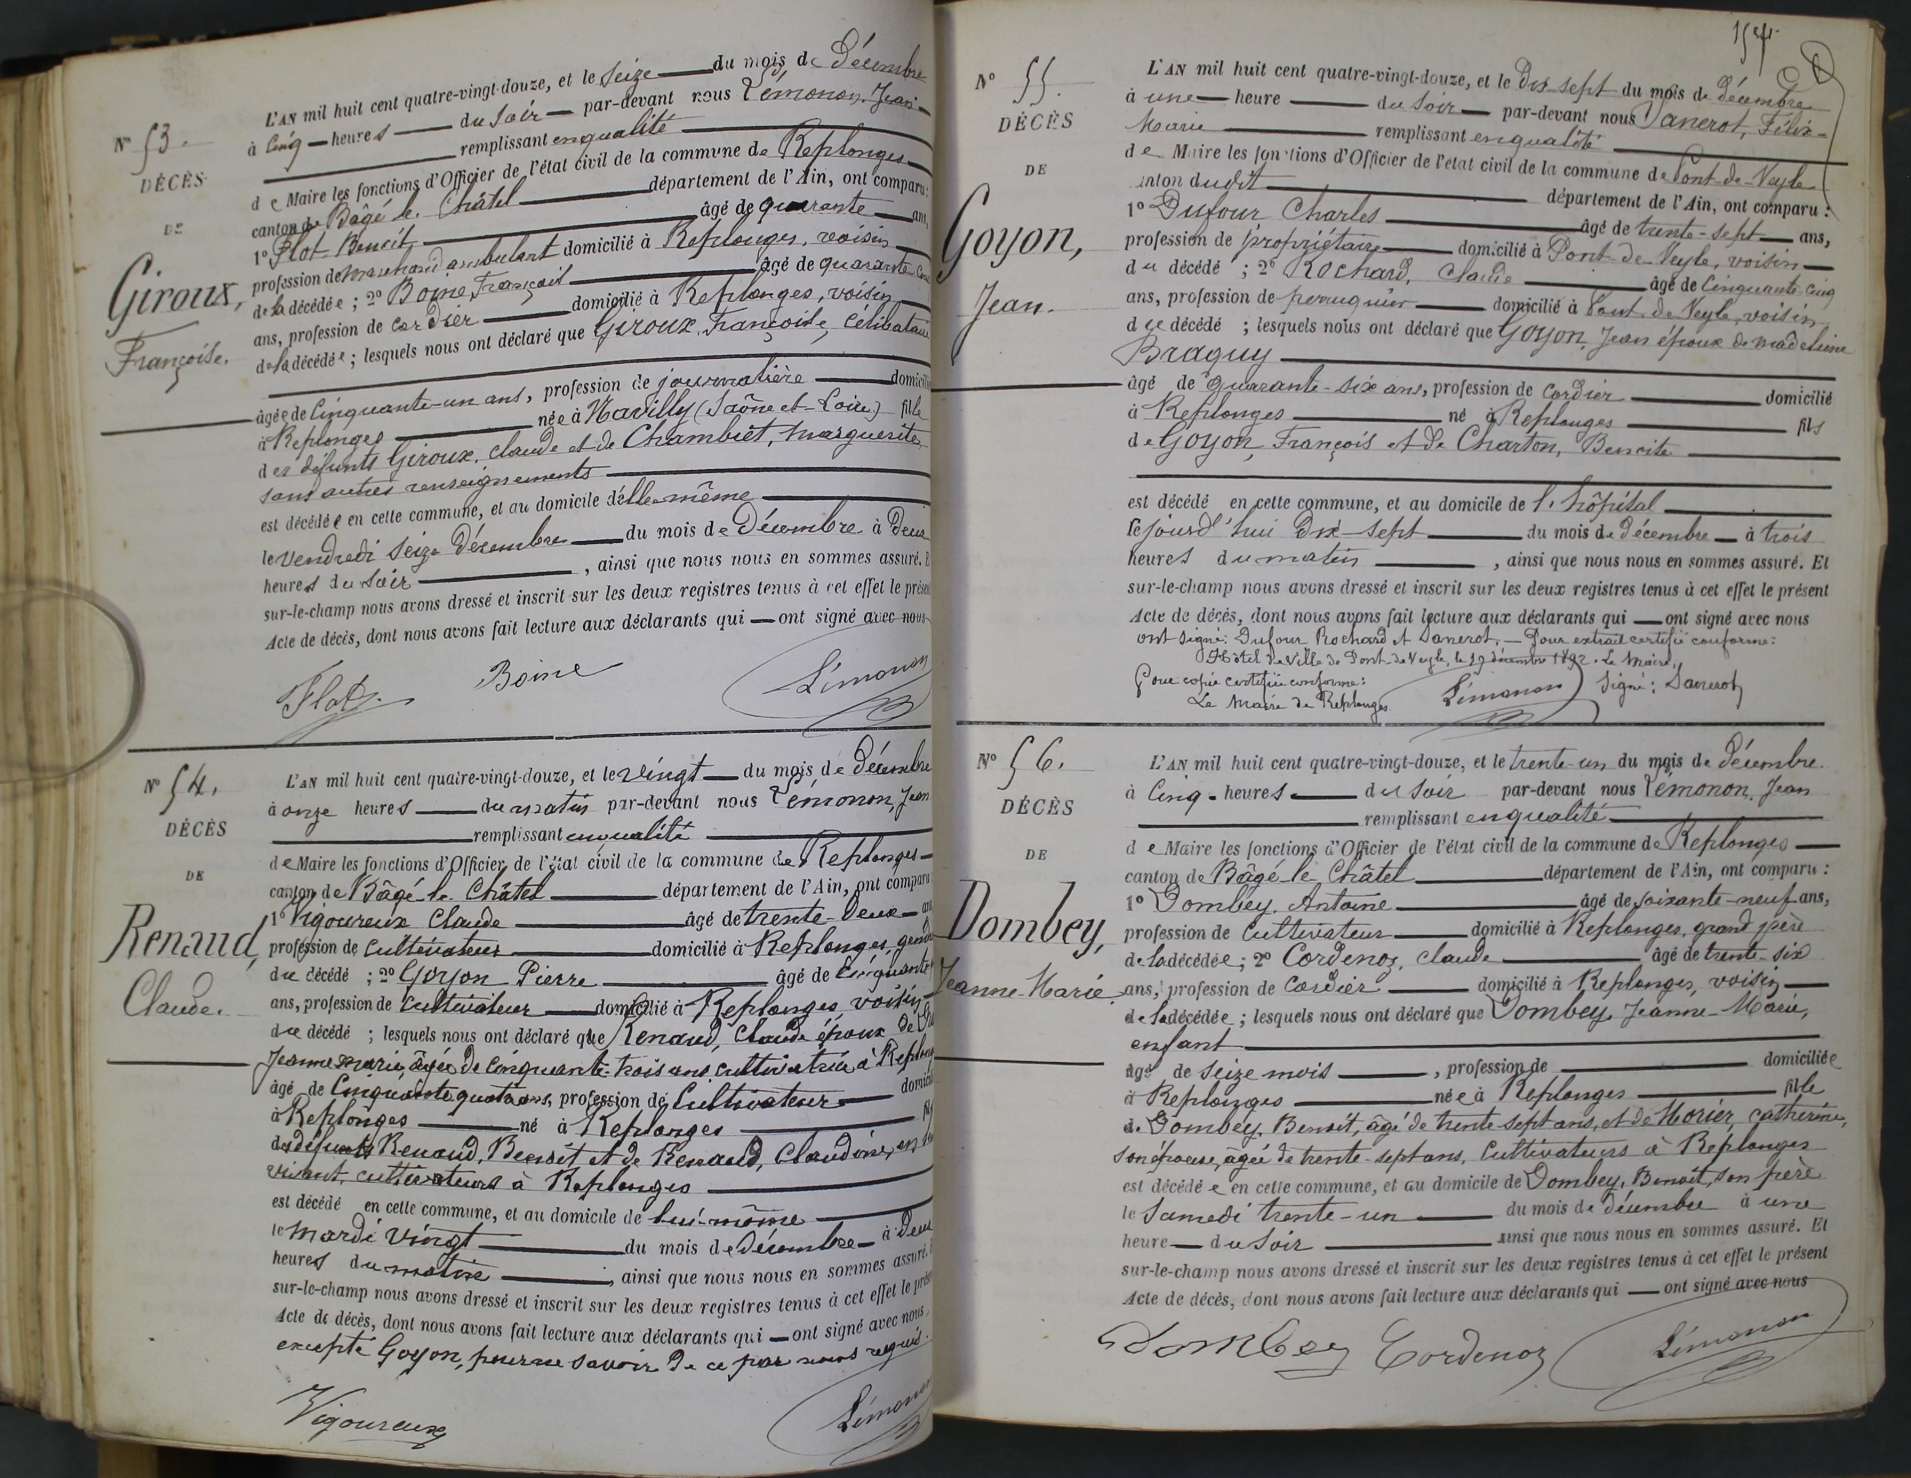 N° 53.
DÉCÈS
DE
Giroux,
Françoise.
L'AN mil huit cent quatre-vingt-douze, et le Seize du mois de Décembre
à Cinq heures du Soir par-devant nous Lémonon, Jean
remplissant en qualité
de Maire les fonctions d'Officier de l'état civil de la commune de Replonges
canton de Bâgé-le-Châtel département de l'Ain, ont comparu:
1° Flot Benoit, âgé de quarante ans,
profession de Marchand ambulant domicilié à Replonges, voisin
de la décédée ; 2° Boine François âgé de quarante
ans, profession de cordier domicilié à Replonges, voisin
de la décédée ; lesquels nous ont déclaré que Giroux, Françoise, Célibataire
âgée de Cinquante-un ans, profession de journalière domiciliée
à Replonges née à Navilly (Saône-et-Loire) fille
des défunts Giroux, Claude et de Chambiet, Marguerite,
sans autres renseignements
est décédée en cette commune, et au domicile d'elle-même
le Vendredi Seize Décembre du mois de Décembre à Deux
heures du Soir , ainsi que nous nous en sommes assuré. E
sur-le-champ nous avons dressé et inscrit sur les deux registres tenus à cet effet le présen
Acte de décès, dont nous avons fait lecture aux déclarants qui — ont signé avec nous
Flot
Boine
Lémonon
N° 54.
DÉCÈS
DE
Renaud,
Claude.
L'AN mil huit cent quatre-vingt-douze, et le vingt du mois de Décembre
à onze heures du matin par-devant nous Lémonon, Jean
remplissant en qualité
de Maire les fonctions d'Officier de l'état civil de la commune de Replonges
canton de Bâgé-le-Châtel département de l'Ain, ont comparu
1° Vigoureux Claude âgé de trente-Deux an
profession de Cultivateur domicilié à Replonges, gendre
du décédé ; 2° Goyon Pierre âgé de Cinquante
ans, profession de Cultivateur domicilié à Replonges, voisin
du décédé ; lesquels nous ont déclaré que Renaud, Claude époux de
Jeanne Marie, âgée de cinquante-trois ans cultivatrice à Replonges
âgé de Cinquante quatre ans, profession de Cultivateur domicilié
à Replonges né à Replonges fils
des défunts Renaud, Benoit et de Renaud, Claudine, en leur
vivant, cultivateurs à Replonges
est décédé en cette commune, et au domicile de lui-même
le Mardi Vingt du mois de Décembre à Deux
heures du matin , ainsi que nous nous en sommes assuré.
sur-le-champ nous avons dressé et inscrit sur les deux registres tenus à cet effet le prése
Acte de décès, dont nous avons fait lecture aux déclarants qui — ont signé avec nous,
excepté Goyon, pour ne savoir de ce par nous requis.
Vigoureux
Lémonon
154
N° 55.
DÉCÈS
DE
Goyon,
Jean.
L'AN mil huit cent quatre-vingt-douze, et le Dix-sept du mois de décembre
à une heure du Soir par-devant nous Sanerot, Félix-
Marie remplissant en qualité
de Maire les fonctions d'Officier de l'état civil de la commune de Pont-de-Veyle
canton dudit département de l'Ain, ont comparu :
1° Dufour Charles âgé de trente-sept ans,
profession de propriétaire domicilié à Pont-de-Veyle, voisin
du décédé ; 2° Rochard, Claude âgé de Cinquante-cinq
ans, profession de perruquier domicilié à Pont-de-Veyle, voisin
du décédé ; lesquels nous ont déclaré que Goyon, Jean époux de Madeleine
Braguy
âgé de quarante-six ans, profession de Cordier domicilié
à Replonges né à Replonges fils
de Goyon, François et de Charton, Benoite
est décédé en cette commune, et au domicile de l'hôpital
cejourd'hui Dix-sept du mois de décembre à trois
heures du matin , ainsi que nous nous en sommes assuré. Et
sur-le-champ nous avons dressé et inscrit sur les deux registres tenus à cet effet le présent
Acte de décès, dont nous avons fait lecture aux déclarants qui — ont signé avec nous
ont signé: Dufour Rochard et Sanerot. — Pour extrait certifié conforme:
Hôtel de Ville de Pont-de-Veyle, le 29 décembre 1892. Le Maire,
Pour copie certifiée conforme: Signé: Sanerot
Le Maire de Replonges Lémonon
N° 56.
DÉCÈS
DE
Dombey,
Jeanne-Marie.
L'AN mil huit cent quatre-vingt-douze, et le trente-un du mois de Décembre
à Cinq heures du Soir par-devant nous Lémonon, Jean
remplissant en qualité
de Maire les fonctions d'Officier de l'état civil de la commune de Replonges
canton de Bâgé-le-Châtel département de l'Ain, ont comparu :
1° Dombey, Antoine âgé de soixante-neuf ans,
profession de Cultivateur domicilié à Replonges, grand père
de la décédée ; 2° Cordenoz, Claude âgé de trente-six
ans, profession de Cordier domicilié à Replonges, voisin
de la décédée ; lesquels nous ont déclaré que Dombey, Jeanne-Marie,
enfant
âgé de Seize mois , profession de domiciliée
à Replonges née à Replonges fille
de Dombey, Benoit, âgé de trente-sept ans, et de Morier, Catherine,
son épouse, âgée de trente-sept ans, Cultivateurs à Replonges
est décédée en cette commune, et au domicile de Dombey, Benoit, son père
le Samedi trente-un du mois de décembre à une
heure du Soir ainsi que nous nous en sommes assuré. Et
sur-le-champ nous avons dressé et inscrit sur les deux registres tenus à cet effet le présent
Acte de décès, dont nous avons fait lecture aux déclarants qui — ont signé avec nous
Dombey Cordenoz Lémonon